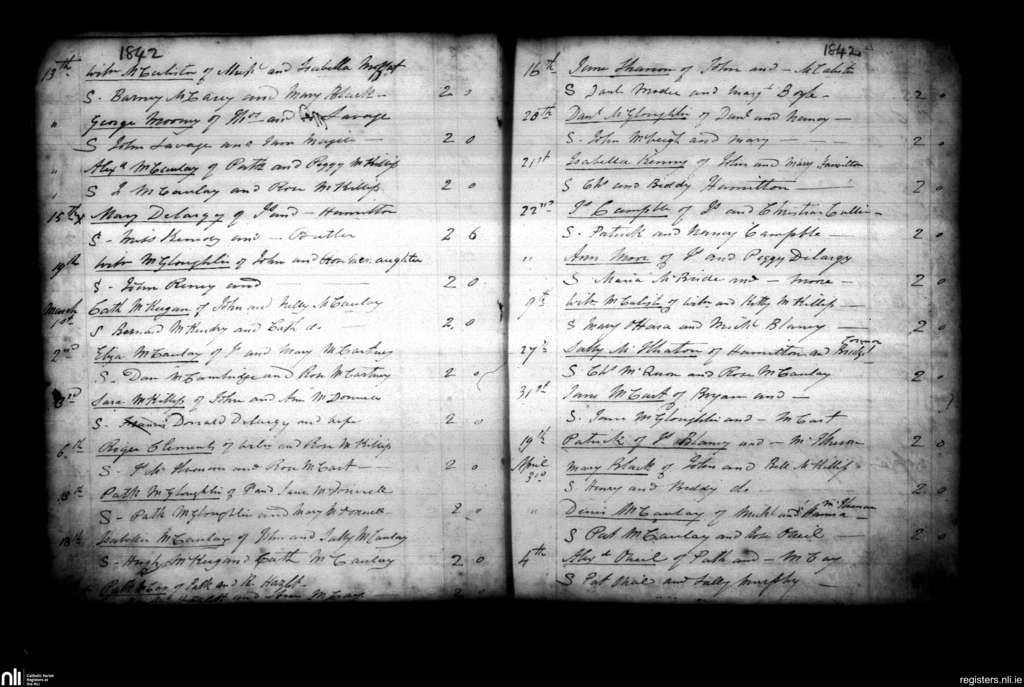 1842
13th Willm McAlister of Michl and Isabella Moffat
S. Barney McCarey and Mary Black - 2 0
" George Mooney of Thos and Savage
S John Savage and Jane Magill 2 0
" Alexr McCaulay of Patk and Peggy McKillip
S J McCaulay and Rose McKillip 2 0
15th x Mary Delargy of Js and - Hamilton
S. Miss Kennedy and - Butler 2 6
19th Willm McGloughlin of John and
S. John Reney and 2 0
March 1st Cath McKeegan of John and Nelly McCaulay
S Bernard McKendry and Cath do 2. 0
2nd Eliza McCaulay of J and Mary McCartney
S. Dan McCambridge and Rose McCartney 2 0
3rd Sara McKillip of John and Ann McDonnell
S. Francis Donald Delargy and wife 2 0
6th Roger Clements of Willm and Rose McKillip
S. J McIlheran and Rose McCart - 2 0
Patk McGloughlin of P and Jane McDonnell
S - Patk McGloughlin and Mary McDonnell 2
13th Isabella McCaulay of John and Sally McCaulay
S. Hugh McKeegan and Cath McCaulay 2 0
Patk McCay of Patk and
and Ann McCay 2
1842
16th Jane of John and - McAlister
S Danl Modie and Margt Boyle - 2 0
20th Danl McGloughlin of Danl and Nancy -
S. John McVeigh and Mary - 2 0
21st Isabella Kenny of John and Mary Hamilton
S Chs and Biddy Hamilton - 2 0
22nd Js Campble of Js and Christian -
S. Patrick and Nancy Campble - 2 0
" Ann Moor of J and Peggy Delargy
S. Maria McBride and - Moore - 2 0
9th Willm McAulish of Willm and Kitty McKillip
S Mary OHara and Michl Blaney - 2 0
27th Sally McIlhatton of Hamilton and Bridgt Connor
S Chs McQuon and Rose McCaulay 2 0
31st Jane McCart of Bryan and -
S. Jane McGloughlin and - McCart 2 0
19th Patrick of Js Blaney and - McIlheran 2 0
April 3rd Mary Black of John and Bell McKillip
S Henry and Biddy do. 2 0
" Denis McCaulay of Michl and McIlheran
S Pat McCaulay and Rose ONeil - 2 0
4th Alexr ONeil of Patk and - McCay
S Pat ONeil and Sally Murphy -
nli
Catholic Parish
Registers at
the NLI
registers.nli.ie